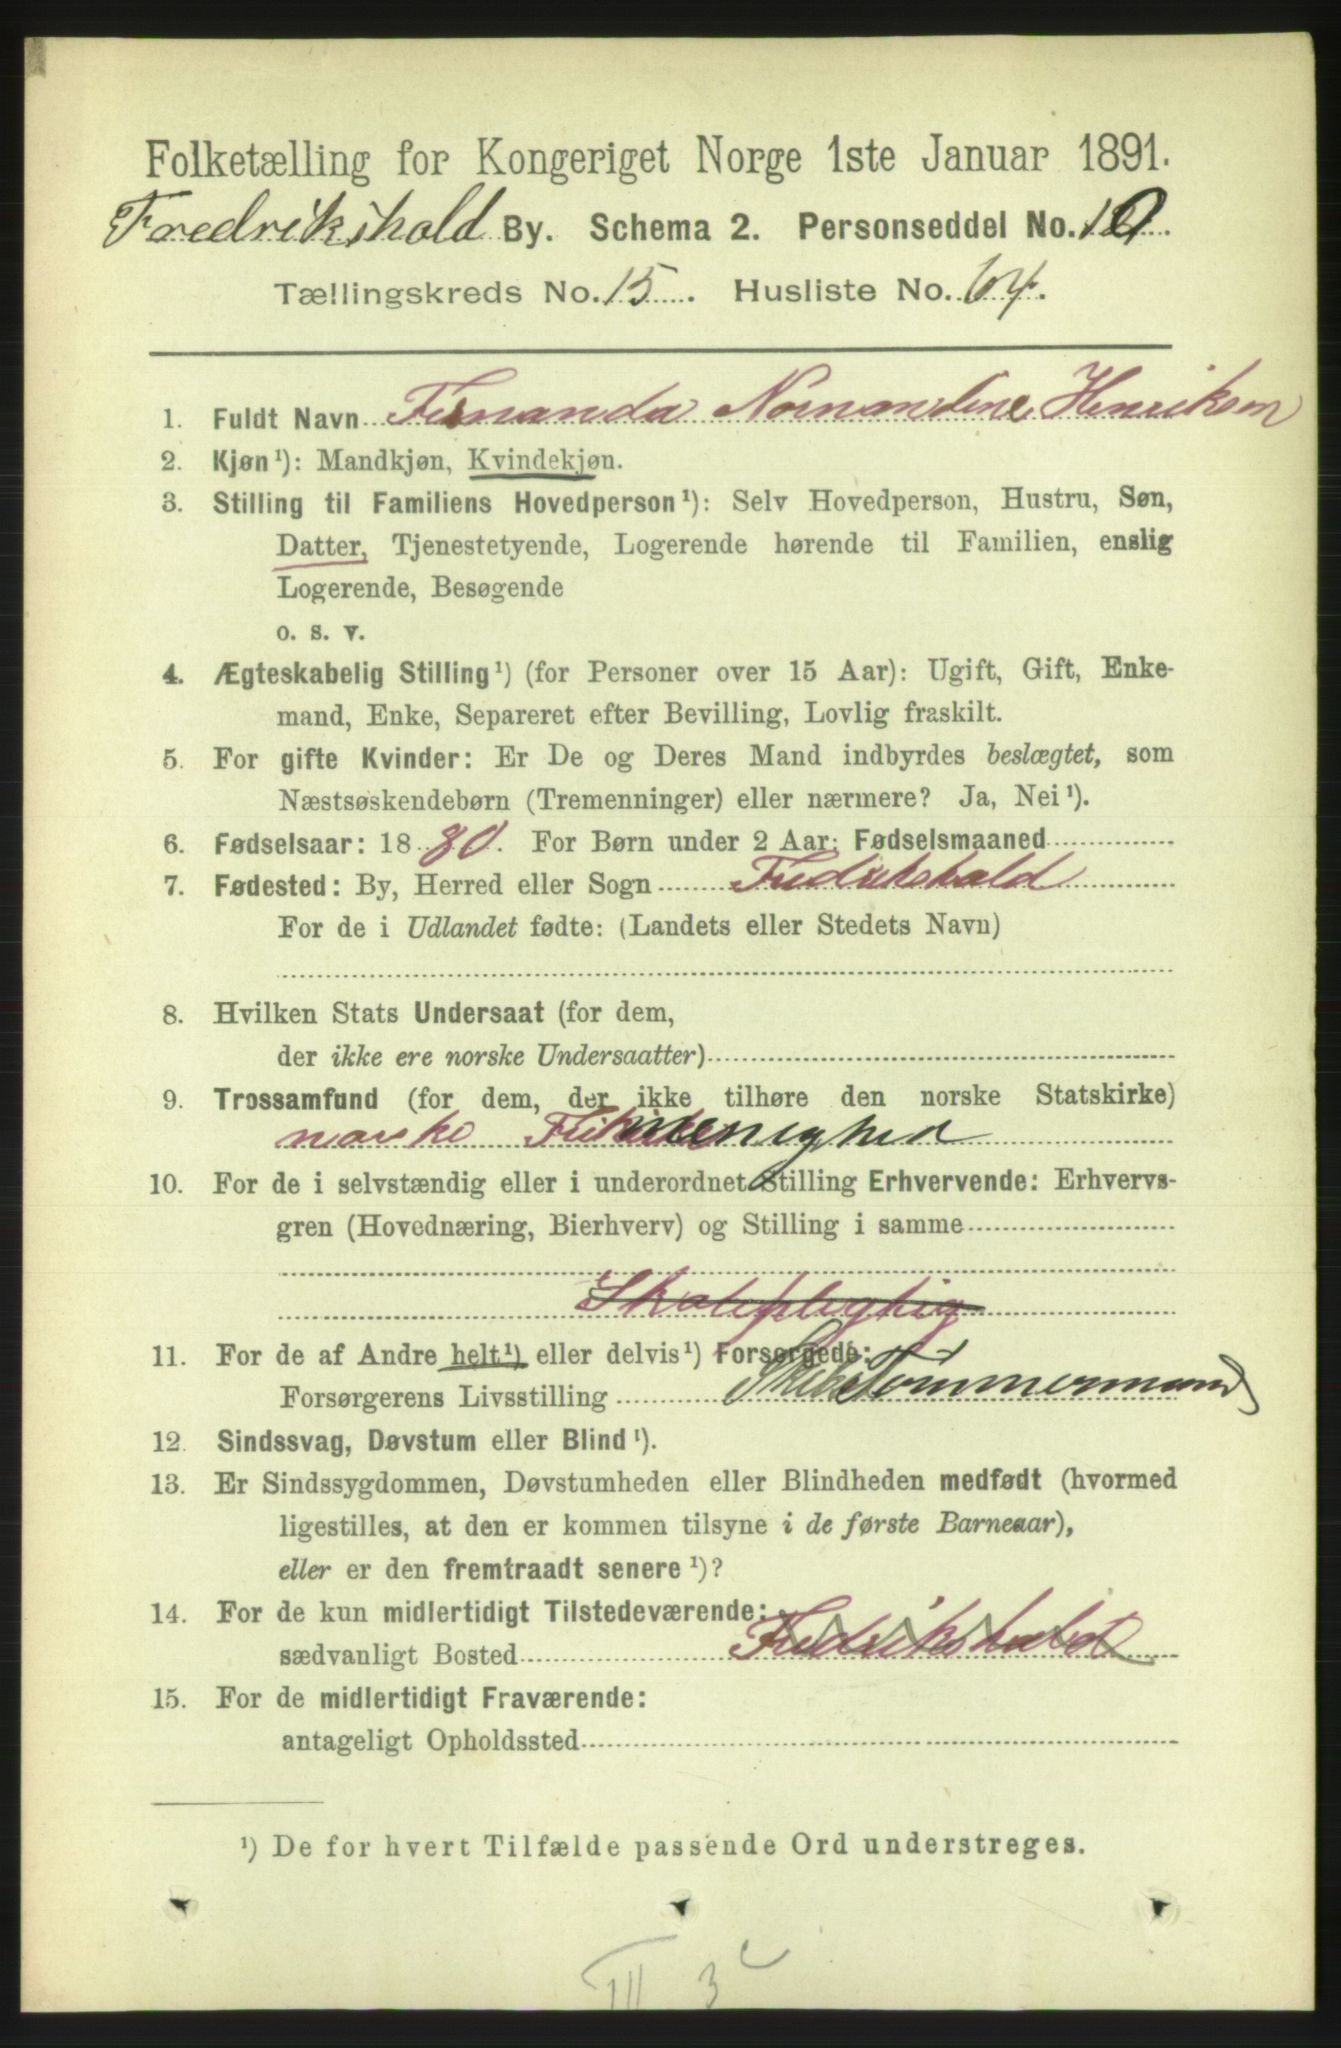 Folketælling for Kongeriget Norge 1ste Januar 1891.
Fredrikshald By. Schema 2. Personseddel No. 10.
Tællingskreds No. 15. Husliste No. 64.
1. Fuldt Navn Fernanda Normandine Henriksen
2. Kjøn ¹): Mandkjøn, Kvindekjøn.
3. Stilling til Familiens Hovedperson ¹): Selv Hovedperson, Hustru, Søn,
Datter, Tjenestetyende, Logerende hørende til Familien, enslig
Logerende, Besøgende
o. s. v.
4. Ægteskabelig Stilling ¹) (for Personer over 15 Aar): Ugift, Gift, Enke-
mand, Enke, Separeret efter Bevilling, Lovlig fraskilt.
5. For gifte Kvinder: Er De og Deres Mand indbyrdes beslægtet, som
Næstsøskendebørn (Tremenninger) eller nærmere? Ja, Nei ¹).
6. Fødselsaar: 1880. For Børn under 2 Aar: Fødselsmaaned
7. Fødested: By, Herred eller Sogn Fredrikshald
For de i Udlandet fødte: (Landets eller Stedets Navn)
8. Hvilken Stats Undersaat (for dem,
der ikke ere norske Undersaatter)
9. Trossamfund (for dem, der ikke tilhøre den norske Statskirke)
norske menighed
10. For de i selvstændig eller i underordnet Stilling Erhvervende: Erhvervs-
gren (Hovednæring, Bierhverv) og Stilling i samme
Skolepligtig
11. For de af Andre helt ¹) eller delvis ¹) Forsørgede:
Forsørgerens Livsstilling Skibstømmermand
12. Sindssvag, Døvstum eller Blind ¹).
13. Er Sindssygdommen, Døvstumheden eller Blindheden medfødt (hvormed
ligestilles, at den er kommen tilsyne i de første Barneaar),
eller er den fremtraadt senere ¹)?
14. For de kun midlertidigt Tilstedeværende:
sædvanligt Bosted Fredrikshald
15. For de midlertidigt Fraværende:
antageligt Opholdssted
¹) De for hvert Tilfælde passende Ord understreges.
III 3 c